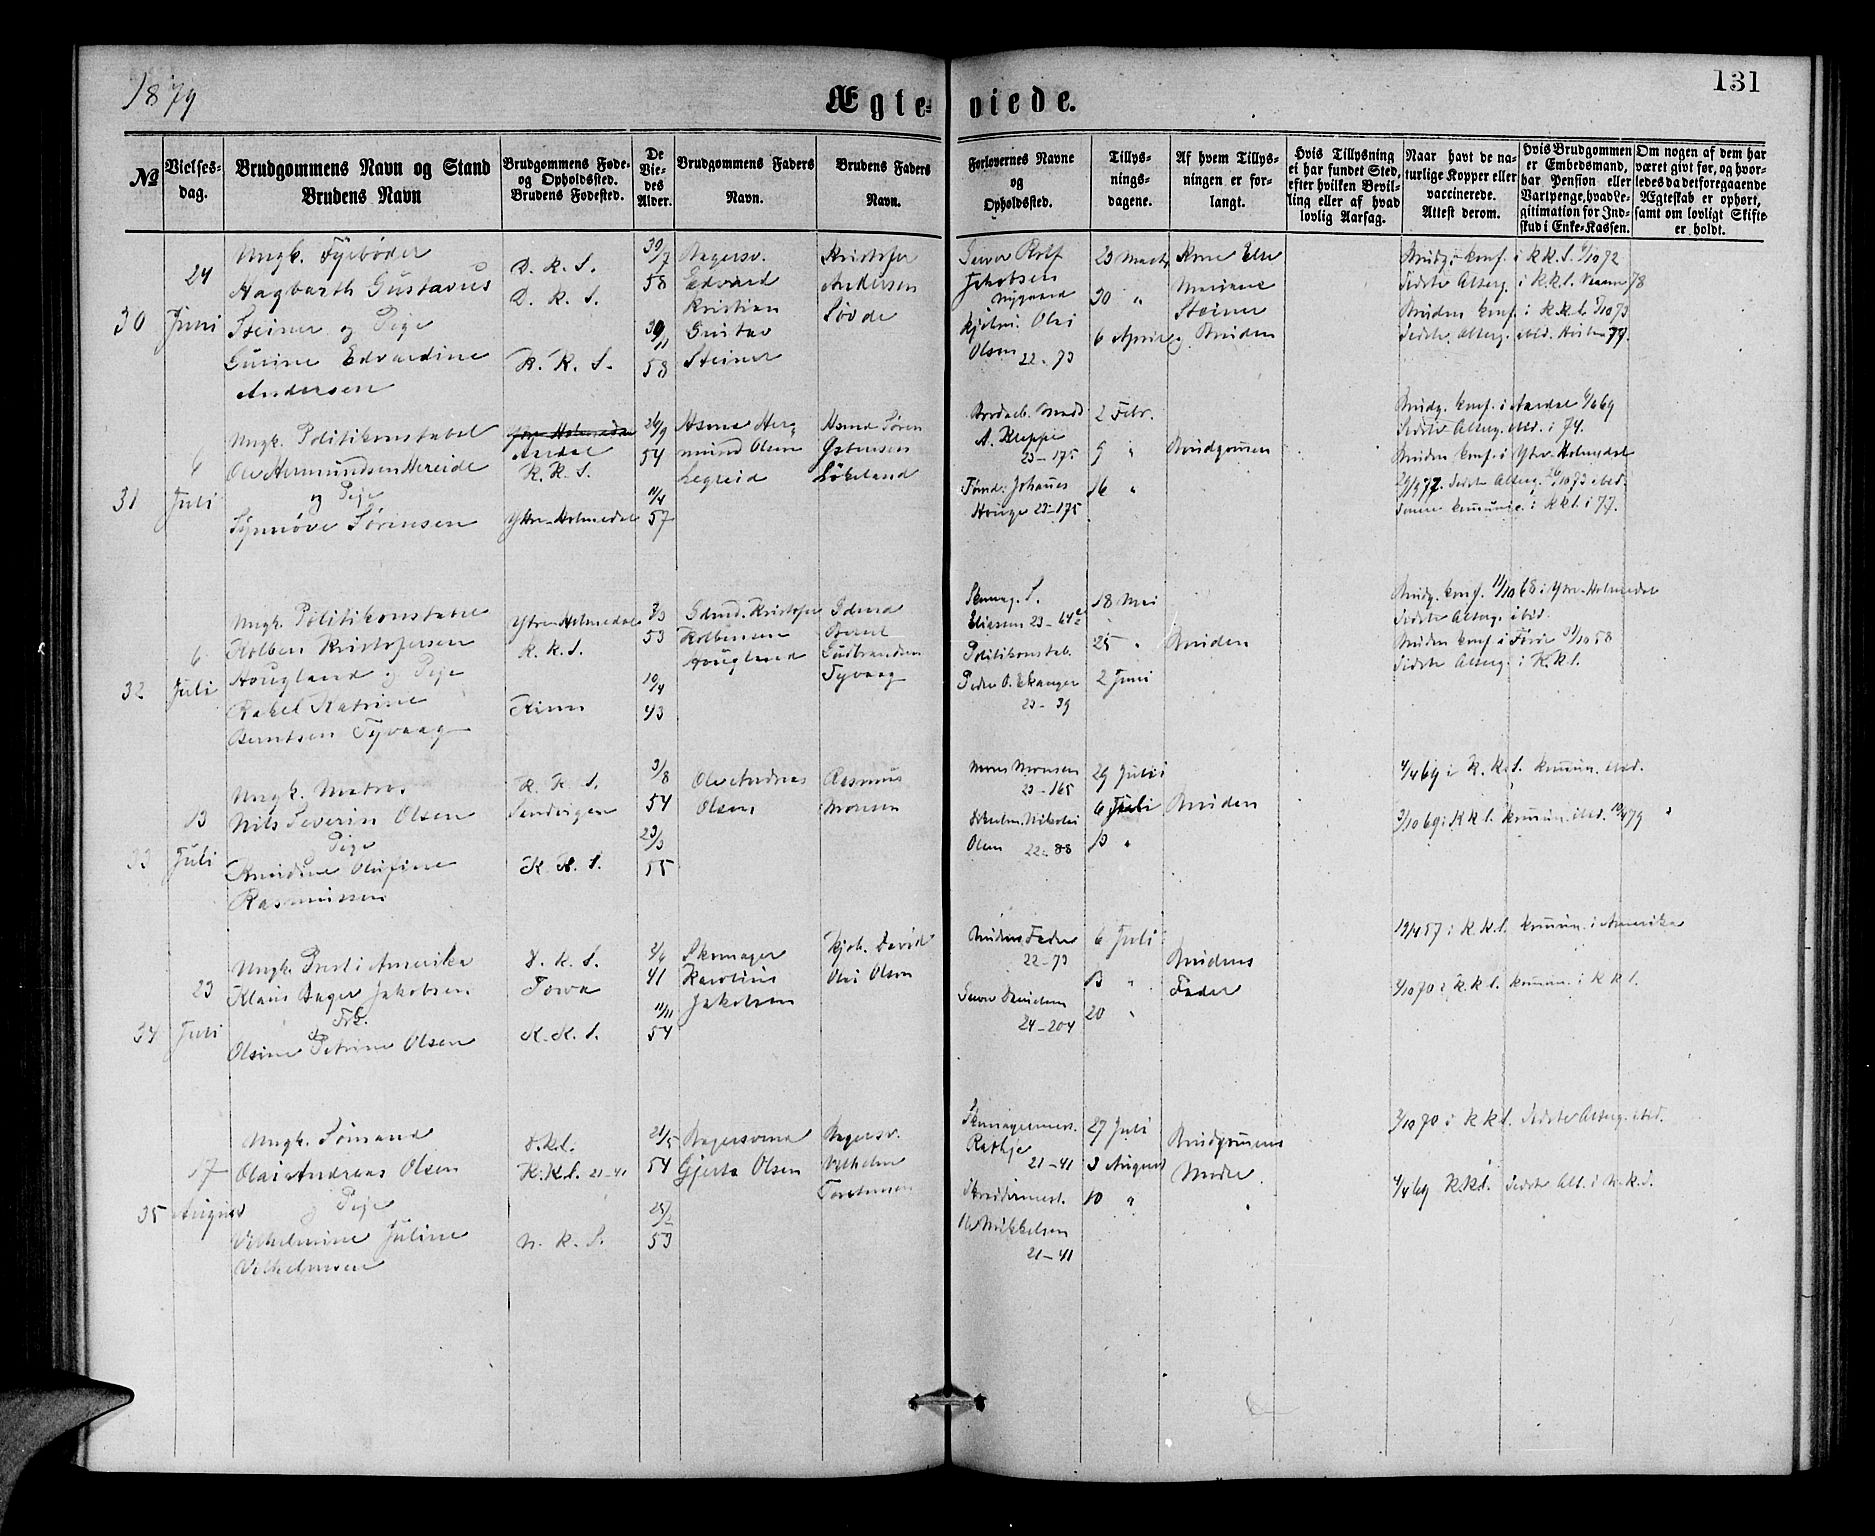 1879
Ægte-viede.
131
No
Vielses-
dag.
Brudgommens Navn og Stand
Brudens Navn
Brudgommens Føde-
og Opholdssted.
Brudens Fødested.
De
Vie-
des
Alder.
Brudgommens Faders
Navn.
Brudens Faders
Navn.
Forlovernes Navne
og
Opholdssted.
Tillys-
nings-
dagene.
Af hvem Tillys-
ningen er for-
langt.
Hvis Tillysning
ei har fundet Sted,
efter hvilken Bevil-
ling eller af hvad
lovlig Aarsag.
Naar havt de na-
turlige Kopper eller
vaccinerede.
Attest derom.
Hvis Brudgommen
er Embedsmand,
har Pension eller
Vartpenge, hvad Le-
gitimation for Ind-
skud i Enke-Kassen.
Om nogen af dem har
været givt før, og hvor-
ledes da detforegaaende
Ægteskab er ophørt,
samt om lovligt Skifte
er holdt.
30
24
Juni
Ungk. Fyrbøder
Hagbarth Gustavus
Steiner og Pige
Gurine Edvardine
Andersen
D. K. S.
D. K. S.
K. K. S.
30/7
58
58
Bagersv.
Edvard
Kristian
Gustav
Steiner
Kristofer
Andersen
Søvde
Jakobsen
Nygaard
Olsen 22-73
23 Marts
30 "
6 April
Kone Else
Mariane
Steiner
og Bruden
Brudg. conf. i K.K.S. 6/10 72
Sidste Alterg. i K.K.S.
Bruden conf. i K.K.S.
31
6
Juli
Ungk. Politikonstabel
Ole Hermundsen Hereide
og Pige
Synnøve Sørensen
Ytre Holmedal
Aardal
K. K. S.
Ytre-Holmedal
26/9
54
11/4
57
Husmd Her-
mund Olsen
Legreid
Husmd Søren
Løkeland
A. Kleppe
23-175
Johannes
Hauge 23-175
2 Febr.
9 "
16 "
Brudgommen
Brudg. conf. i Aardal 6/6 69
Sidste Alterg. ibid. i 74.
Bruden conf. i Ytre Holmedal
i K.K.S. i 77.
32
6
Juli
Ungk. Politikonstabel
Kolben Kristofersen
Hougland og Pige
Rakel Katrine
Berntsen Tyvaag
Ytre-Holmedal
K.K.S.
Kinn
53
10/4
43
Gdmd. Kristofer
Kolbensen
Hougland
Gdmd
Bernt
Gudbrandsen
Tyvaag
Skomag. S.
Eliasen 23-64
Politikonstab.
Peder O. Ekanger
23-39
18 Mai
25 "
2 Juni
Bruden
Brudg. conf. 11/10 68 i Ytre-Holmedal
Sidste Alterg. ibid.
Bruden conf. i Førde 31/10 58
Sidste Alterg. i K.k.S.
33
13
Juli
Ungk. Matros
Nils Severin Olsen
og Pige
Olufine
Rasmussen
K. K. S.
Sandvigen
K. K. S.
3/8
54
23/3
55
Ole Andreas
Olsen
Rasmus
Monsen
Mons Monsen
23-165
Nikolai
Olsen 22-88
29 Juli
6 Juli
13 "
Bruden
4/4 69 i K. K.S. kommun. ibid.
3/10 69 i K.K.S. kommun. ibid. 79
34
23
Juli
Ungk. Prest i Amerika
Klaus Bager Jakobsen
og Frk.
Olsine Petrine Olsen
D. K. S.
Iowa
K. K. S.
2/6
41
11/11
54
Skomager
Karolius
Jakobsen
Kjøb. David
Olai Olsen
Brudens Fader
22-73
24-204
6 Juli
13 "
20 "
Brudens
Fader
19/4 57 i K.K.S. kommun. i Amerika
1/10 70 i K.K.S. kommun. i K.K.S.
35
17
August
Ungk. Sømand
Olai Andreas Olsen
og Pige
Vilhelmine Juline
Vilhelmsen
D.K.S.
K.K.S. 21-41
N. K. S.
21/5
54
25/2
59
Bagersvend
Gjerts Olsen
Bagersv.
Vilhelm
Torstensen
Skomagermest.
Rathje
21-41
Skræddermest.
Ole Mikkelsen
21-41
27 Juli
3 August
10 "
Brudgommens
Moder
2/10 70 i K.K.S. Sidste Alterg. ibid.
4/4 69 K.K.S. Sidste Alt. i N.K.S.